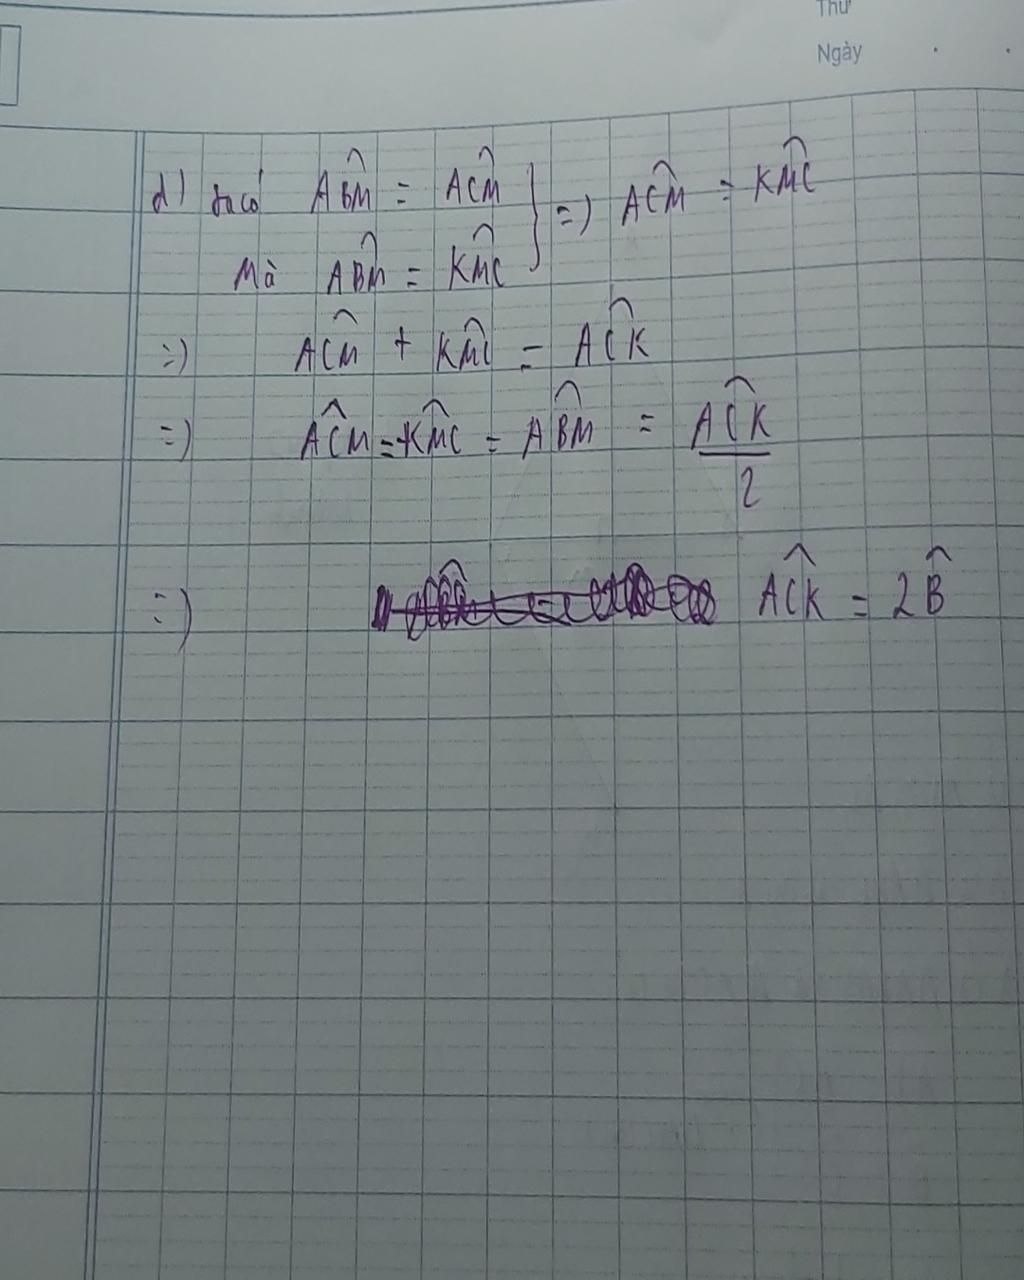 Thứ
Ngày
d) ta có ABM̂ = ACM̂ } => ACM̂ = KMĈ
Mà ABM̂ = KMĈ
=) ACM̂ + KMĈ = ACK̂
=) ACM̂ = KMĈ = ABM̂ = ACK̂ / 2
=) ACK̂ = 2B̂